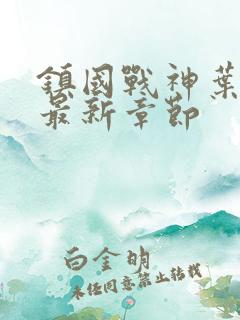 鎮國戰神葉
最新章節
白金明
未經同意禁止轉載